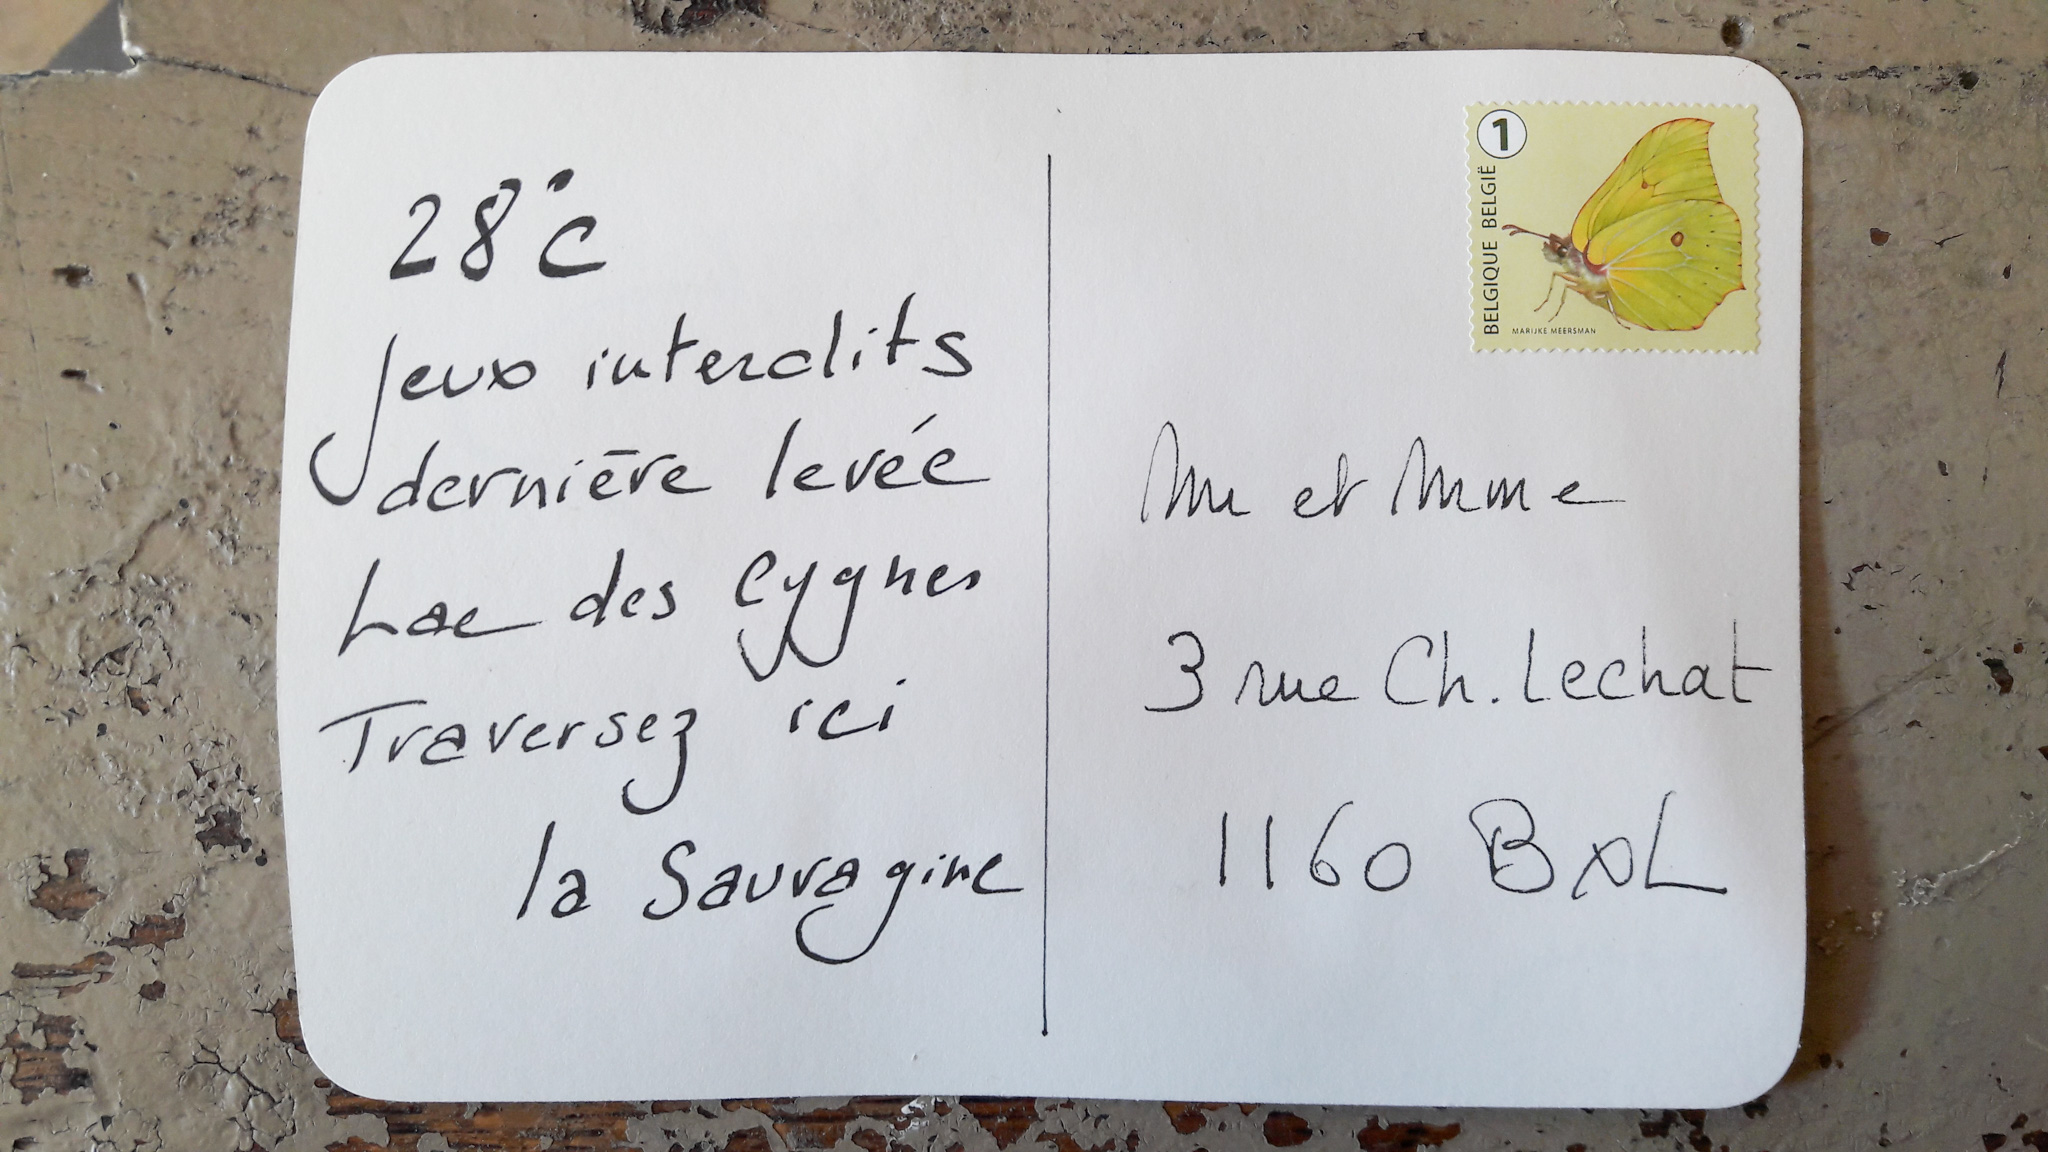 28°C
Jeux interdits
dernière levée
Lac des Cygnes
Traversez ici
la Sauvagine
1
BELGIQUE BELGIË
MARIJKE MEERSMAN
Mr et Mme
3 rue Ch. Lechat
1160 BXL